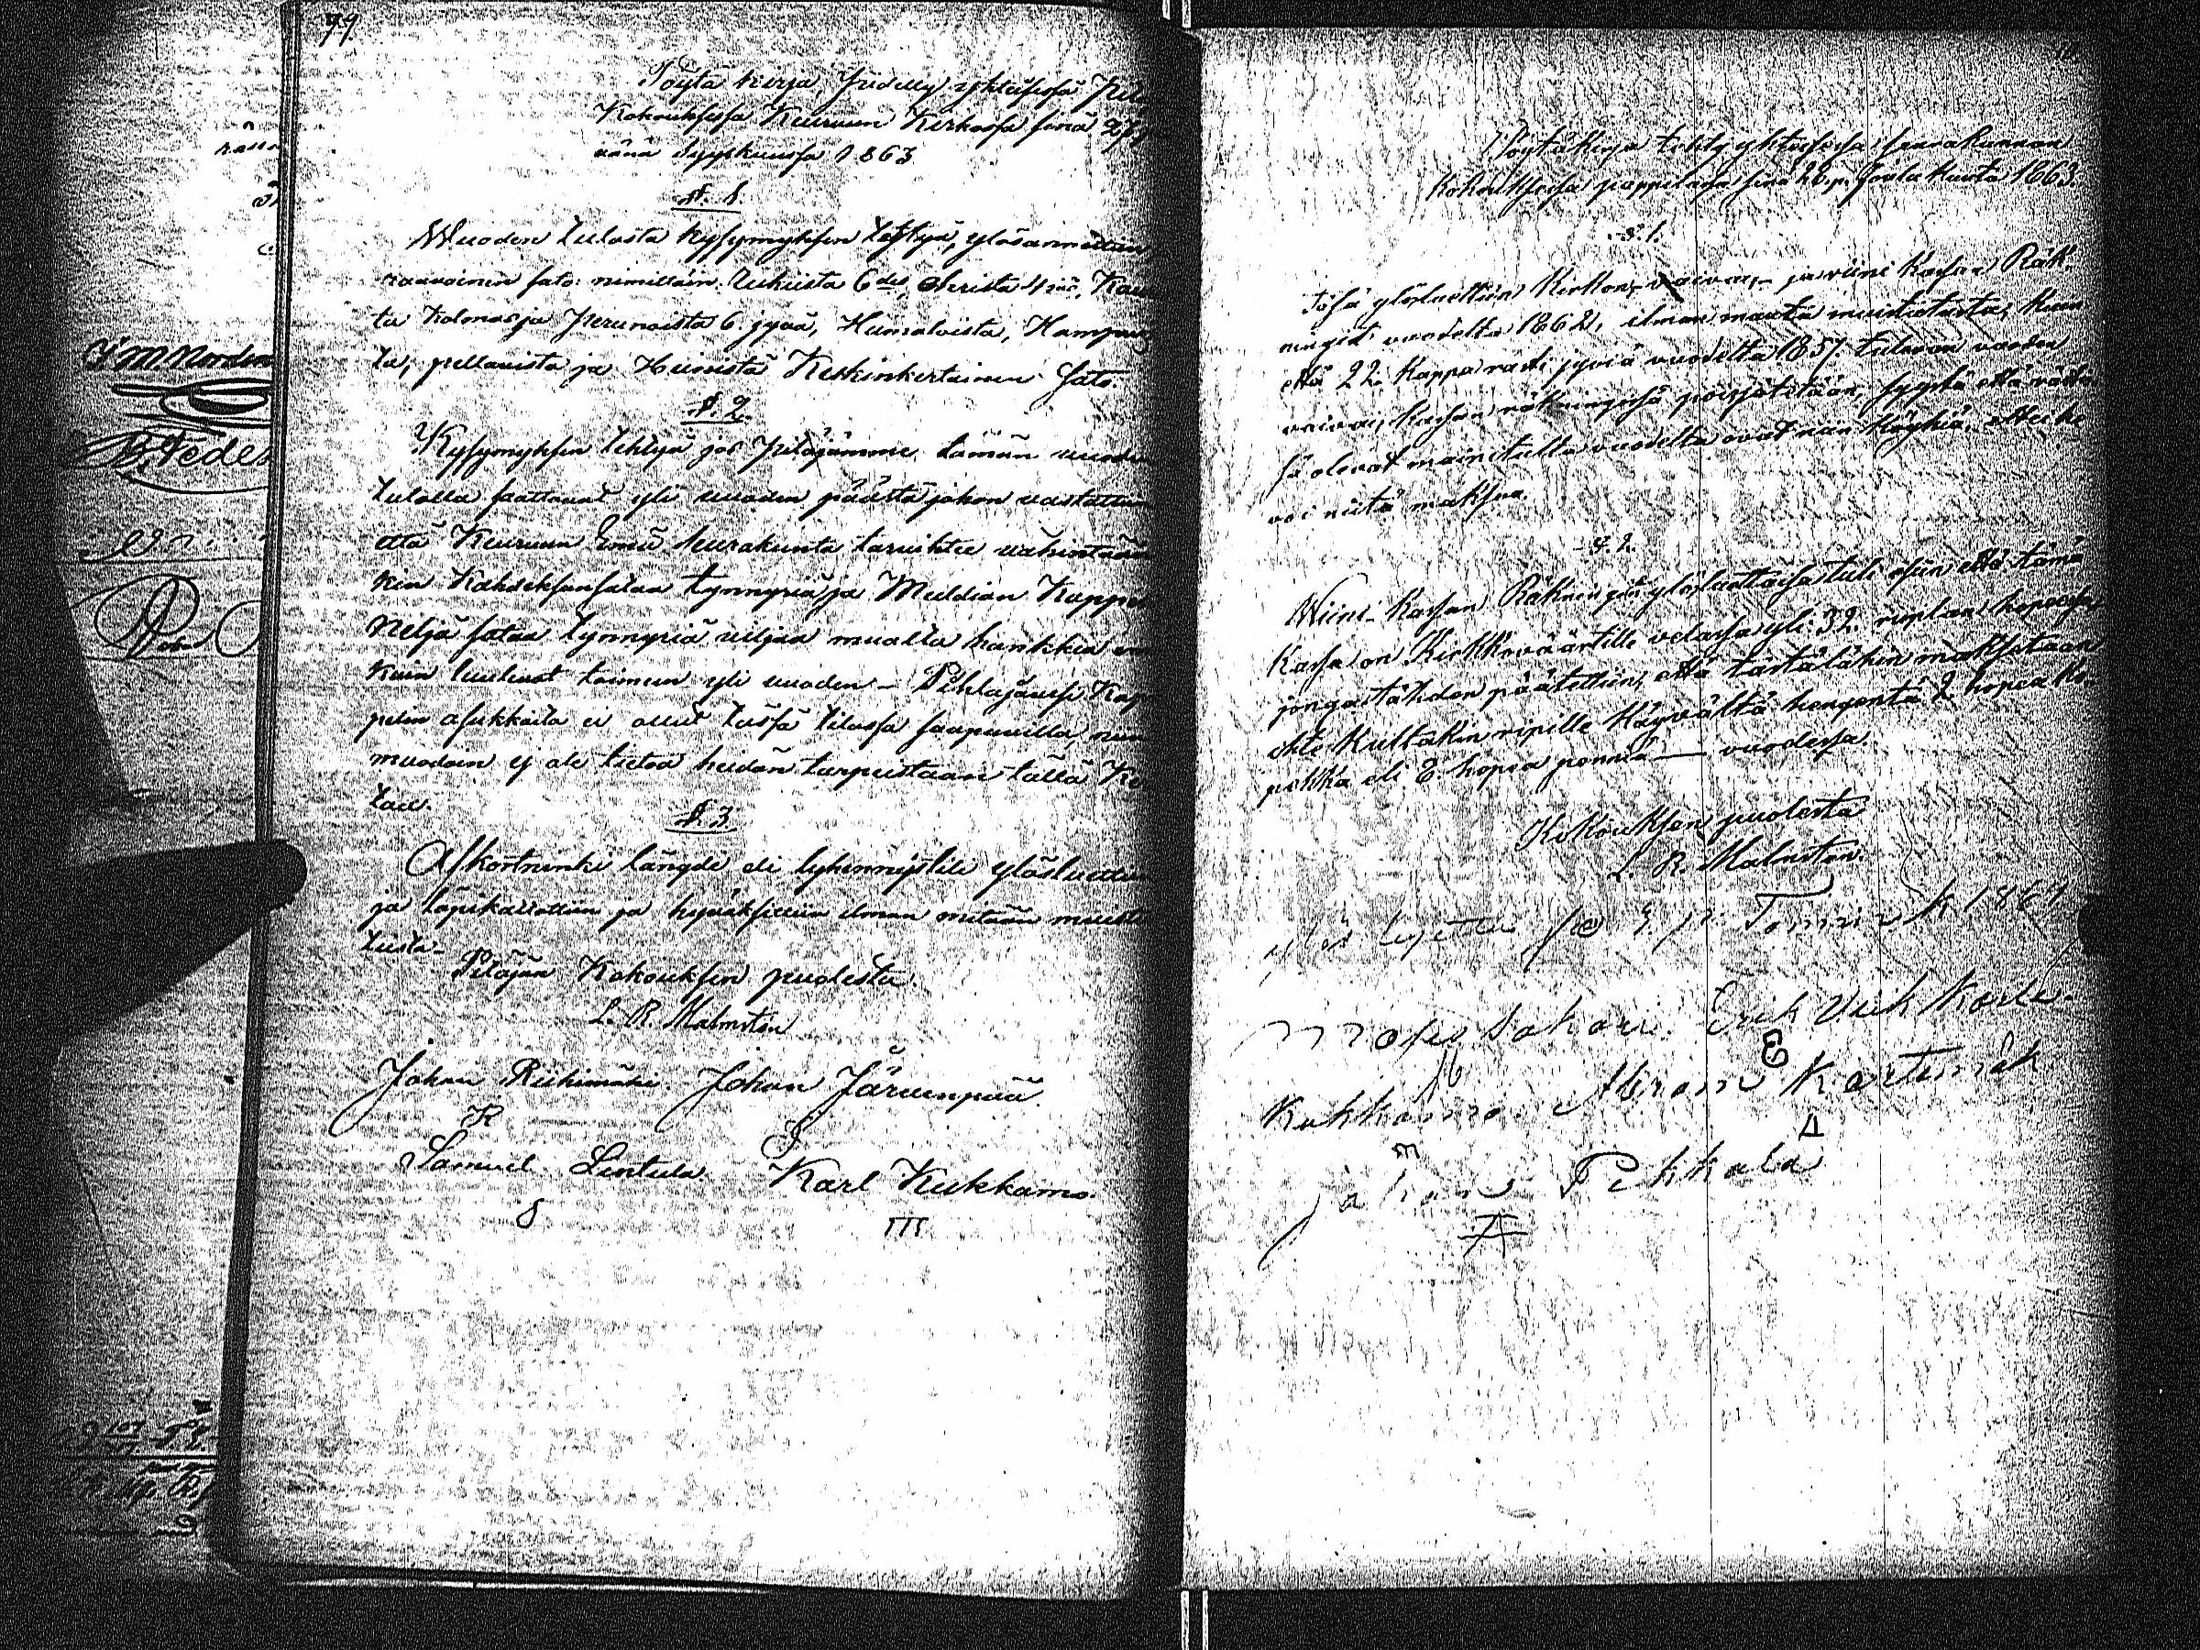 99
Pöytä kirja, pidetty yhteisessä Pitä
Kokouksessa Keuruun Kirkossa sinä 27
nänä Syyskuussa 1863
§. 1.
Wuoden tulosta kysymyksen tehtyä, ylösannettiin
raavainen sato nimittäin: Rukiista 6des, Ohrista 4jäs, Kau
ta kolmas ja perunoista 6. jyvä, Humaloista, Hampuis
ta, pellavista ja Heinistä Keskinkertainen Sato.
§. 2.
Kysymyksen tehtyä jos Pitäjämme tämän vuoden
tulolla saattavat yli vuoden päästä johon vastattiin
että Keuruun Emä Seurakunta tarvihtee vähintään
kin Kahdeksansataa tynnyriä ja Multian Kappeli
Neljä sataa tynnyriä viljaa muualta hankkia en
kuin luulevat toimeen yli vuoden – Pihlajavesi Kap
pelin asukkaita ei ollut tässä tilassa saapuvilla, nin
muodoin ej ole tietoa heidän tarpeistaan tällä Ke
taa.
§. 3.
Afkortninki längdi eli lyhennyslili ylösluettiin
ja läpikatsottiin ja hyväksittiin ilman mitään muistu
tusta –
Pitäjän Kokouksen puolesta.
L. R. Malmstén
Johan Riihimäki. Johan Järvenpää.
R J
Samuel Lintula. Karl Kukkamo.
S m
J M Norden
Pöytäkirja tehty yhteisessä seurakunnan
kokouksessa pappilassa sinä 26. p. Joulukuuta 1863.
§. 1.
Tässä ylösluettiin Kirkon, vaivas- ja viini kassan Räk-
ningit vuodelta 1862, ilman muuta muistutusta, kun
että 22. kappa rästi jyviä vuodelta 1857. tulevan vuoden
vaivais kassan räkningissä poisjätetään, syystä että rästis
sä olevat mainitulta vuodelta ovat niin köyhiä, ettei he
voi niitä maksaa.
§. 2.
Wiini-Kassan Räkningin ylösluettaissa tuli esiin että tämä
Kassa on Kirkkoväärtille velassa yli 32. ruplaa hopeassa,
jonga tähden päätettiin, että tästälähin maksetaan
ehte kultakin ripille käyvältä hengentä 2 hopea ko-
pekka eli 8. hopea penniä — vuodessa.
Kokouksen puolesta
L. R. Malmstén.
ylös luettu se 3 p. Tammi k 1864
Moses Sakari. Erik Vuh Korte-
M E
Kukkamo Abram Kortemäk
m A
johan Pekkala